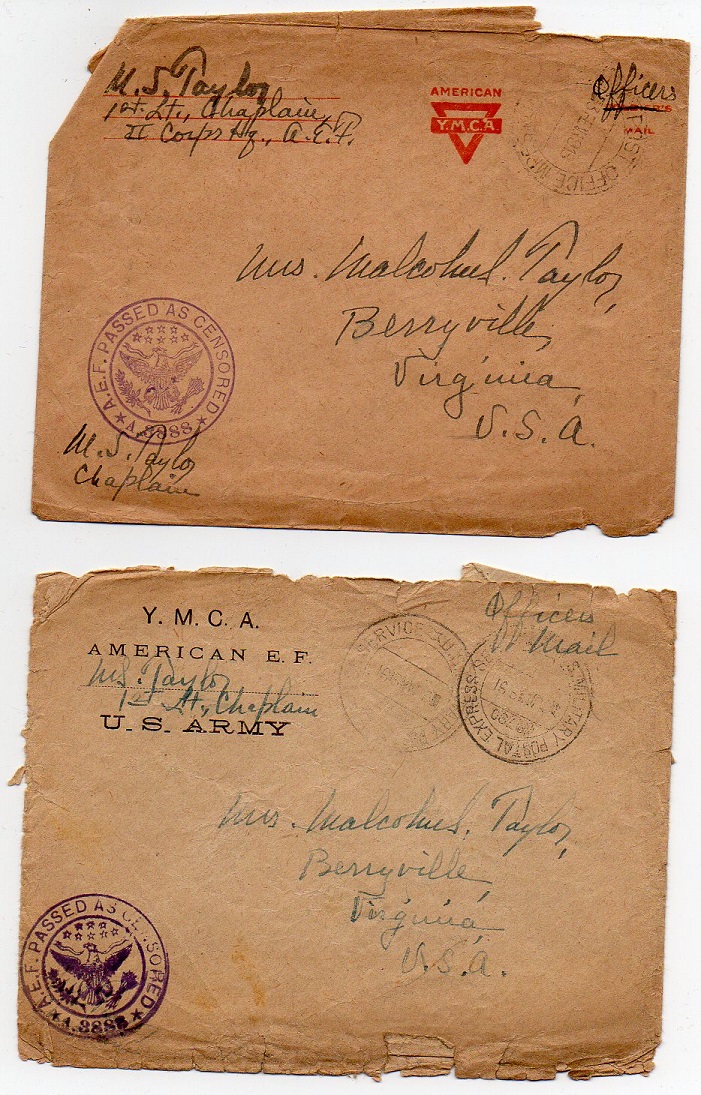 M. S. Taylor
1st Lt., Chaplain,
II Corps Hq., A.E.F.
AMERICAN
Y.M.C.A.
Officers
MAIL
POST OFFICE
Mrs. Malcolm S. Taylor,
Berryville,
Virginia,
U.S.A.
A.E.F. PASSED AS CENSORED
A.3888
M. S. Taylor
Chaplain
Y. M. C. A.
AMERICAN E. F.
M S. Taylor
1st Lt., Chaplain
U. S. ARMY
Officers
Mail
SERVICE
MILITARY POSTAL EXPRESS
Mrs. Malcolm S. Taylor,
Berryville,
Virginia,
U.S.A.
A.E.F. PASSED AS CENSORED
A.3888